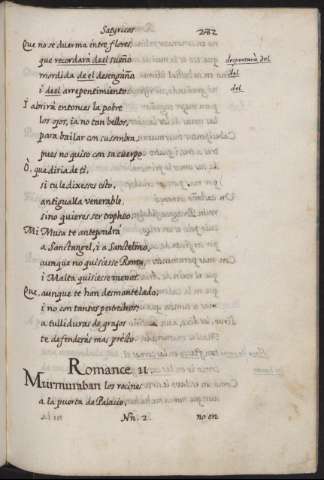 Satyricos 282
Que no se duerma entre flores,
que recordarà del sueño despertarà del
mordida de el desengaño del
i del arrepentimiento. del
I abrirà entonces la pobre
los ojos, ia no tan bellos,
para bailar con su sombra,
pues no quiso con su cuerpo.
O, que diria de ti,
si tu le dixeses esto,
antigualla venerable,
sino quieres ser tropheo.
Mi Musa te antepondrà
a Sanctangel, i a Sanctelmo,
aunque no quisiesse Roma,
i Malta quisiesse menos.
Que, aunque te han desmantelado,
i no con tantos pertrechos,
a tulliduras de grajos
te defenderàs mas presto.
Romance 11.
Murmuraban los rocines
a la puerta de Palacio,
Nn. 2. no en